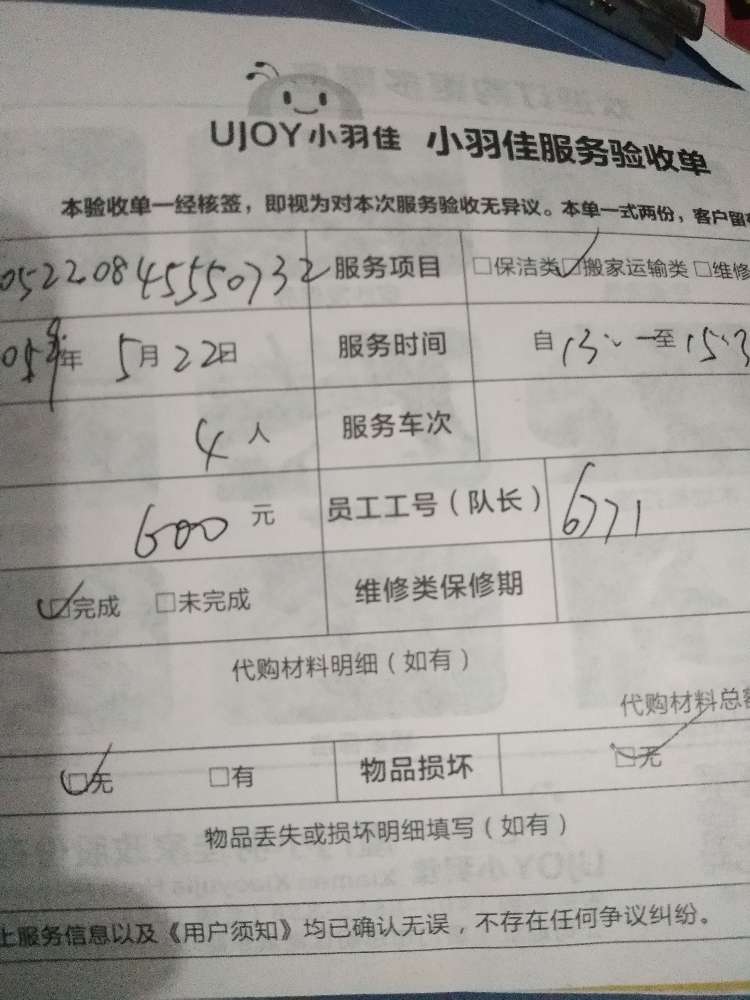 UJOY小羽佳 小羽佳服务验收单
本验收单一经核签，即视为对本次服务验收无异议。本单一式两份，客户留
05220845550732 服务项目 □保洁类 ☑搬家运输类 □维修
年 5月22日 服务时间 自 13 至 15:3
4 人 服务车次
600 元 员工工号（队长） 6771
☑完成 □未完成 维修类保修期
代购材料明细（如有）
代购材料总额
☑无 □有 物品损坏 ☑无
物品丢失或损坏明细填写（如有）
上服务信息以及《用户须知》均已确认无误，不存在任何争议纠纷。